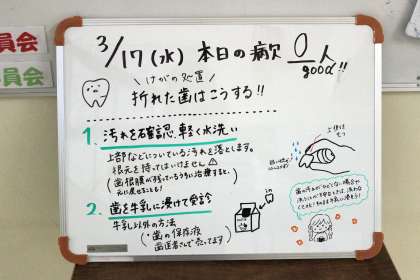 員会
員会
3/17(水) 本日の病欠 0人
good!!
けがの処置
折れた歯はこうする!!
1. 汚れを確認、軽く水洗い
上部などについている汚れを落とします。
根元を持ってはいけません
(歯根膜が残っているうちに治療すると、
元に戻せることも!)
2. 歯を牛乳に浸けて受診
牛乳以外の方法
(・歯の保存液
歯医者さんで売ってます)
上側を
もつ
in